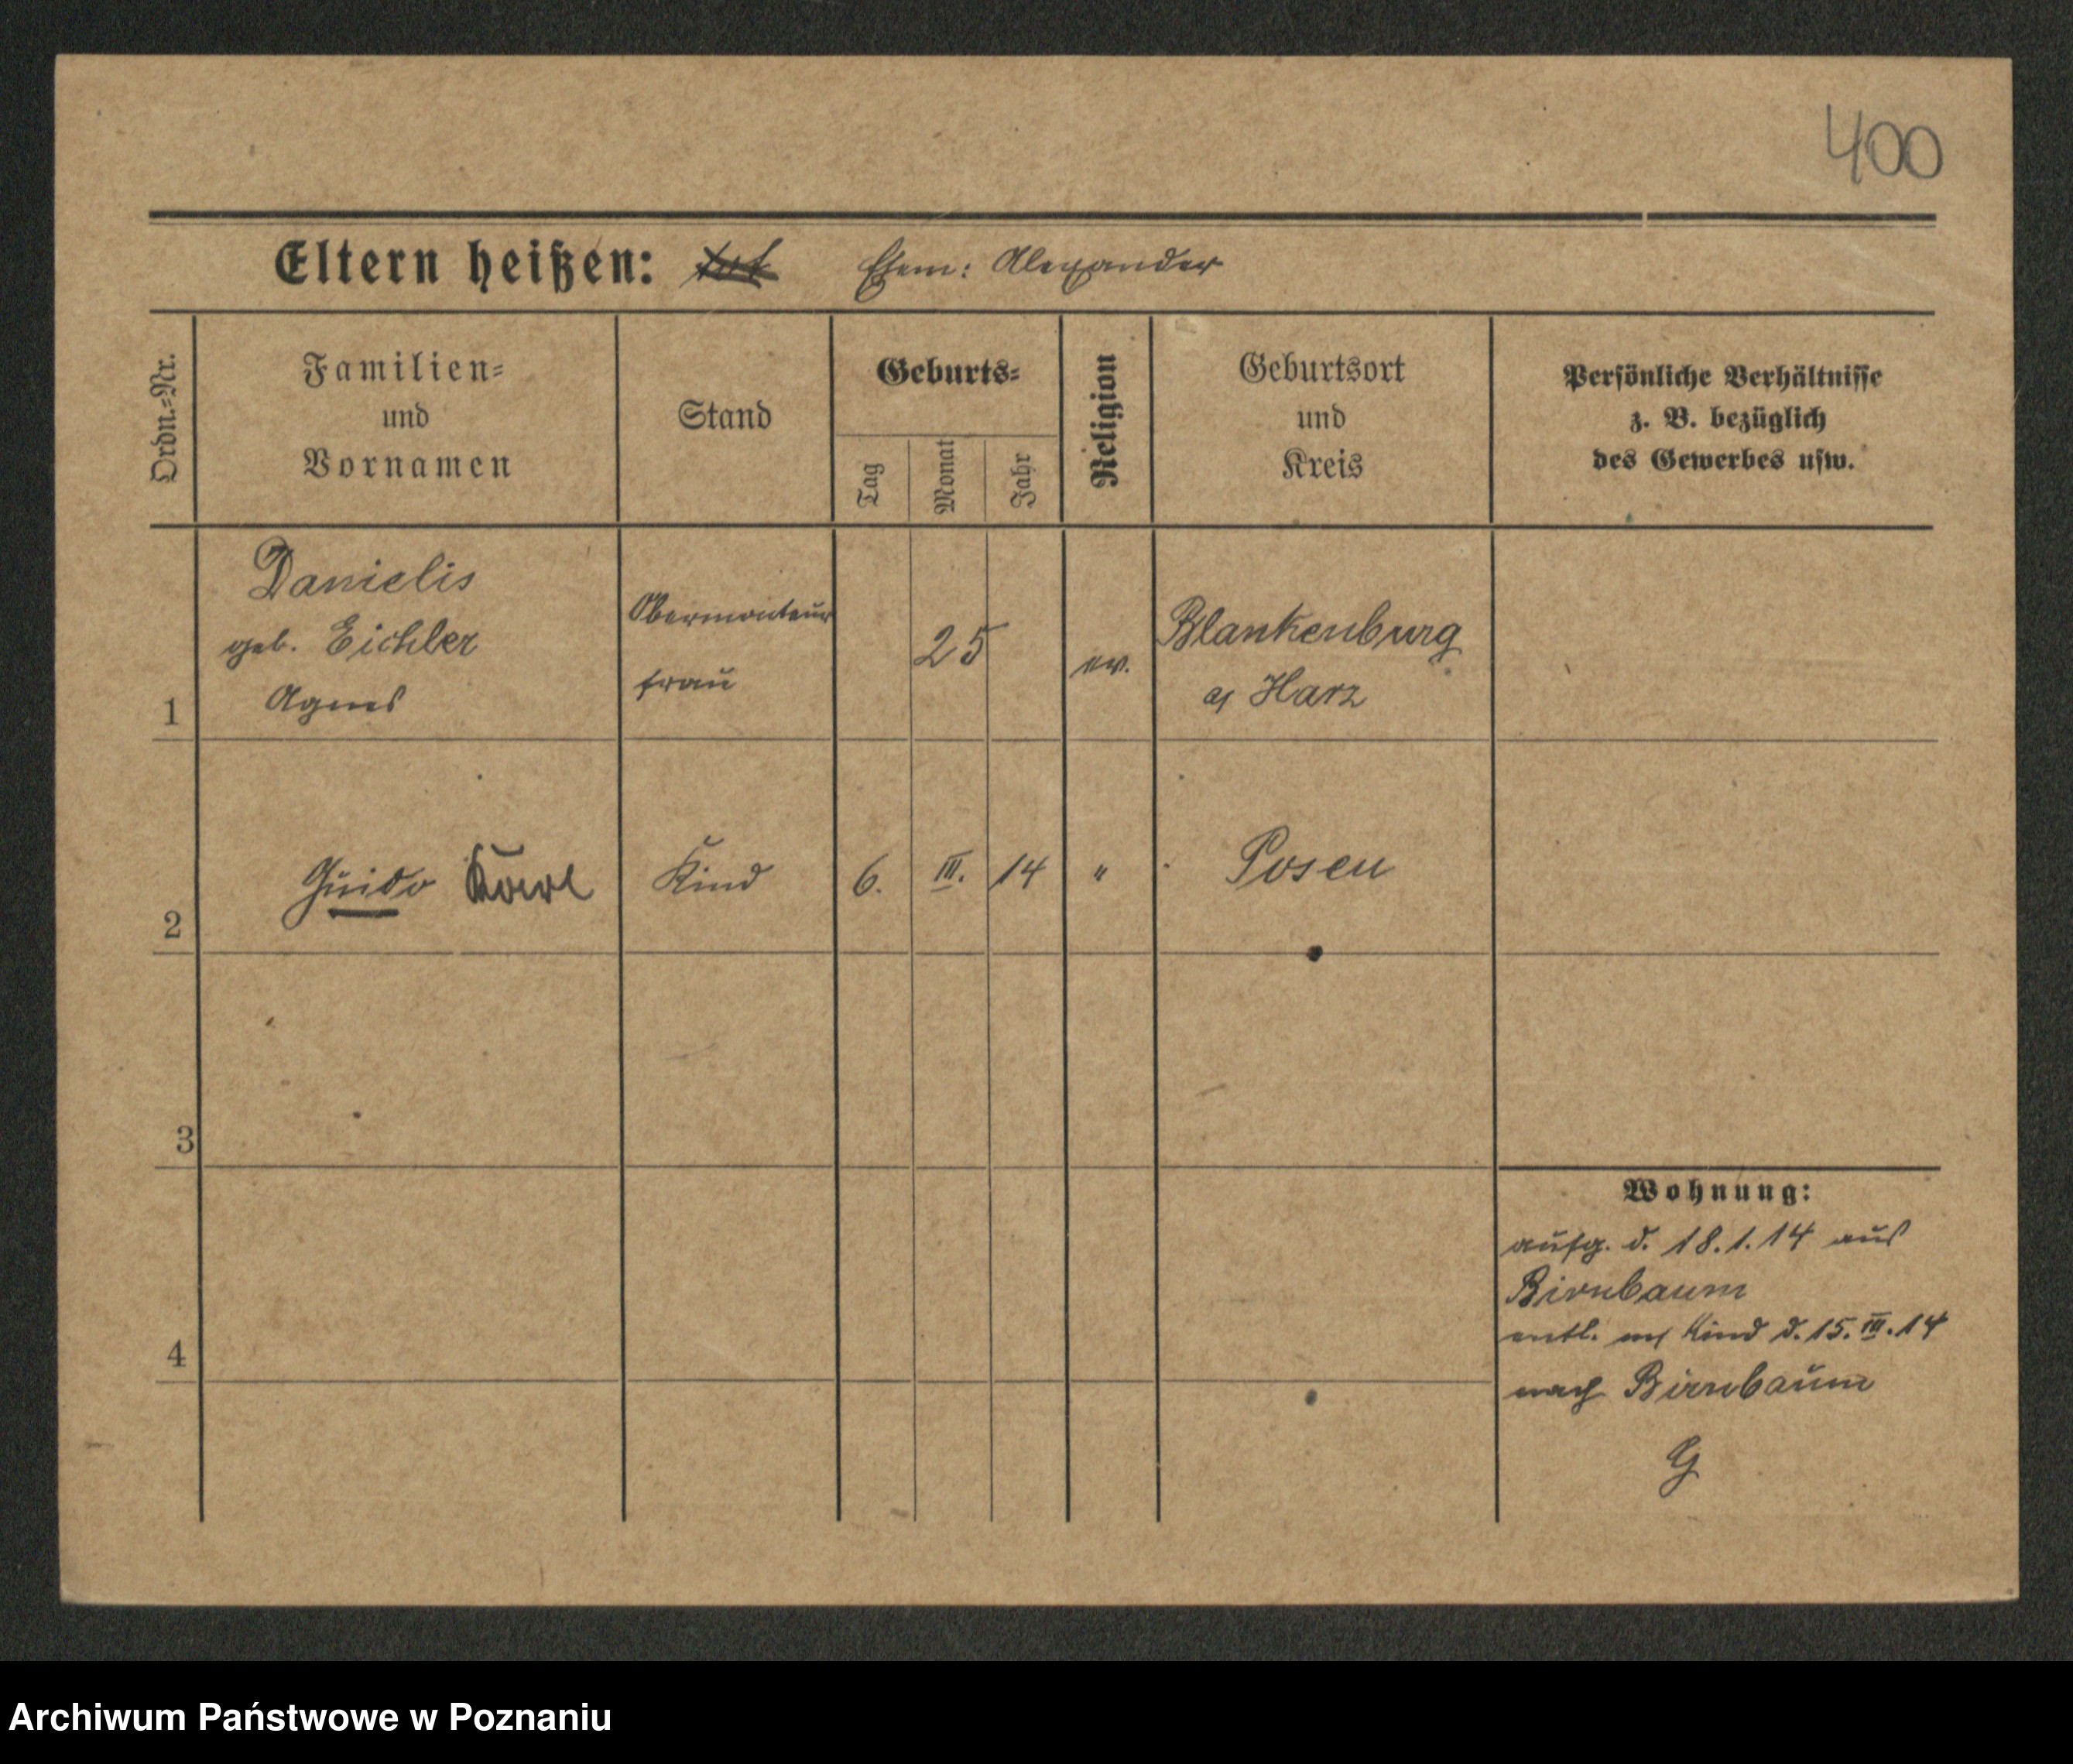 400
Eltern heißen: tot Ehem: Alexander
Ordn.-Nr.
Familien-
und
Vornamen
Stand
Geburts-
Tag
Monat
Jahr
Religion
Geburtsort
und
Kreis
Persönliche Verhältnisse
z. B. bezüglich
des Gewerbes usw.
1
Danielis
geb. Eichler
Agnes
Obermonteur
frau
25
ev.
Blankenburg
a/ Harz
2
Guido Karl
Kind
6. III. 14
"
Posen
3
4
Wohnung:
zugez. d. 18.1.14 aus
Birnbaum
entl. m/ Kind d. 15. III. 14
nach Birnbaum
G
Archiwum Państwowe w Poznaniu